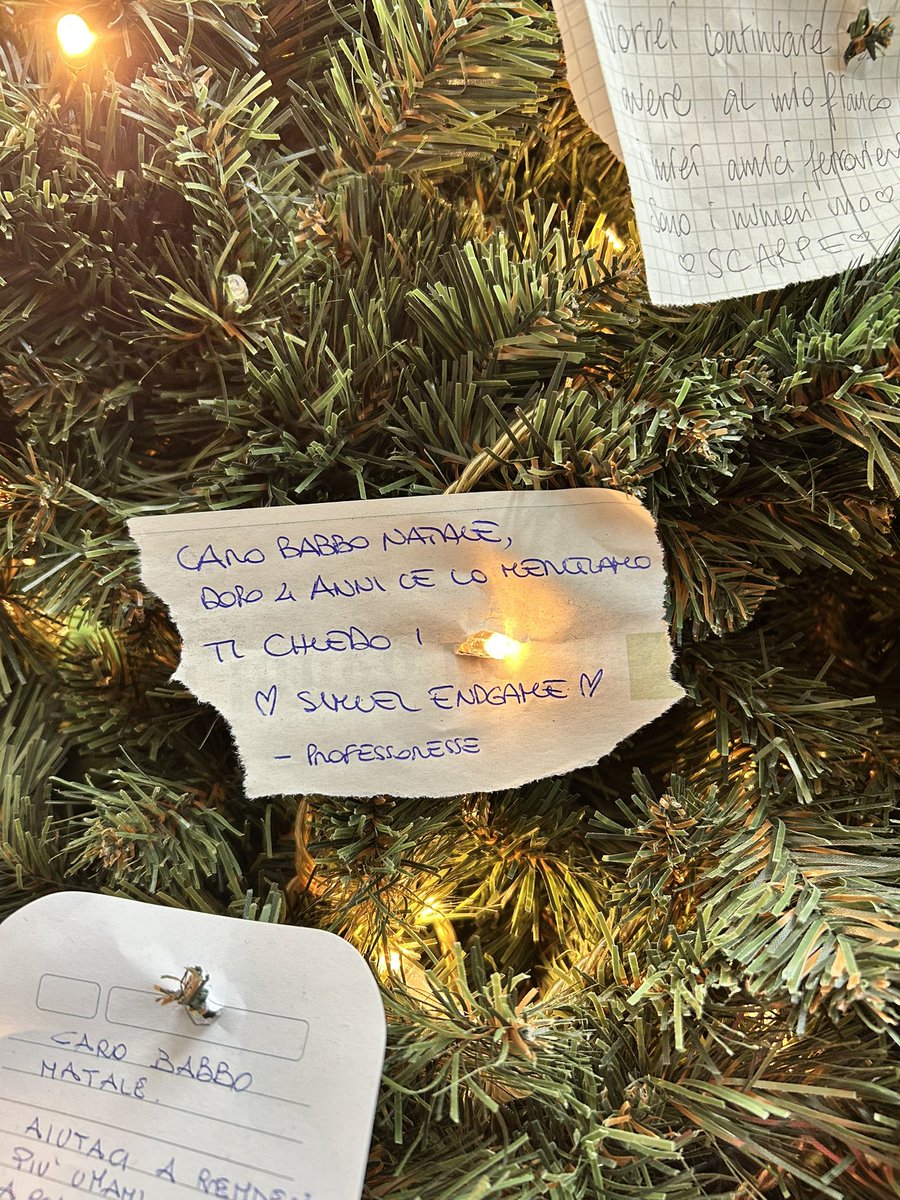 Vorrei continuare
avere al mio fianco
miei amici ferrovier
Sono i numeri uno ♡
♡ SCARPE ♡
CARO BABBO NATALE,
DOPO 4 ANNI CE LO MERITIAMO
TI CHIEDO I
♡ SUMMER ENDGAME ♡
- PROFESSORESSE
CARO BABBO
NATALE.
AIUTACI A RENDER
PIU' UMANI